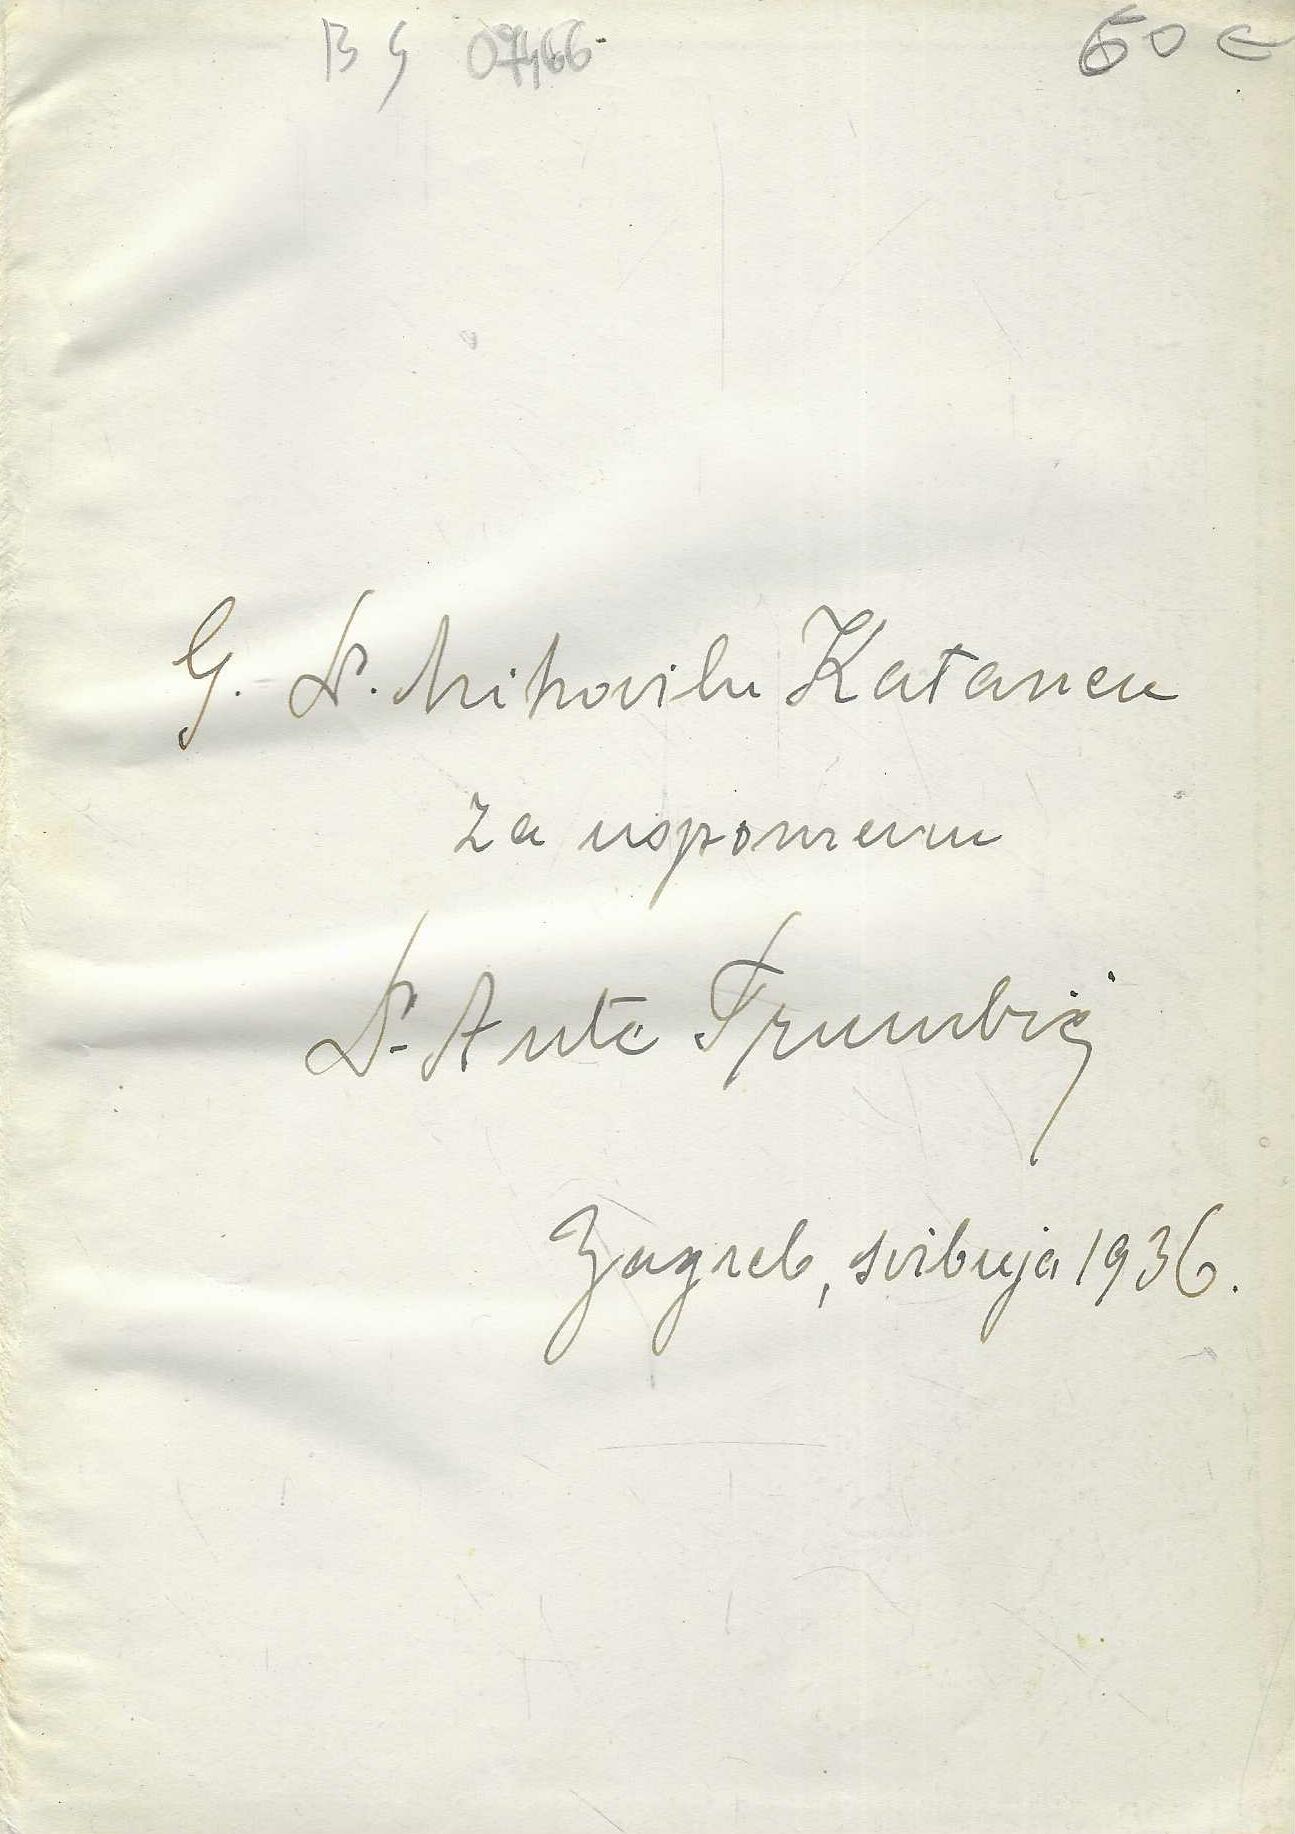 B G 07466 60 €
G. Dr. Mihovilu Katancu
za uspomenu
Dr. Ante Trumbić
Zagreb, svibnja 1936.